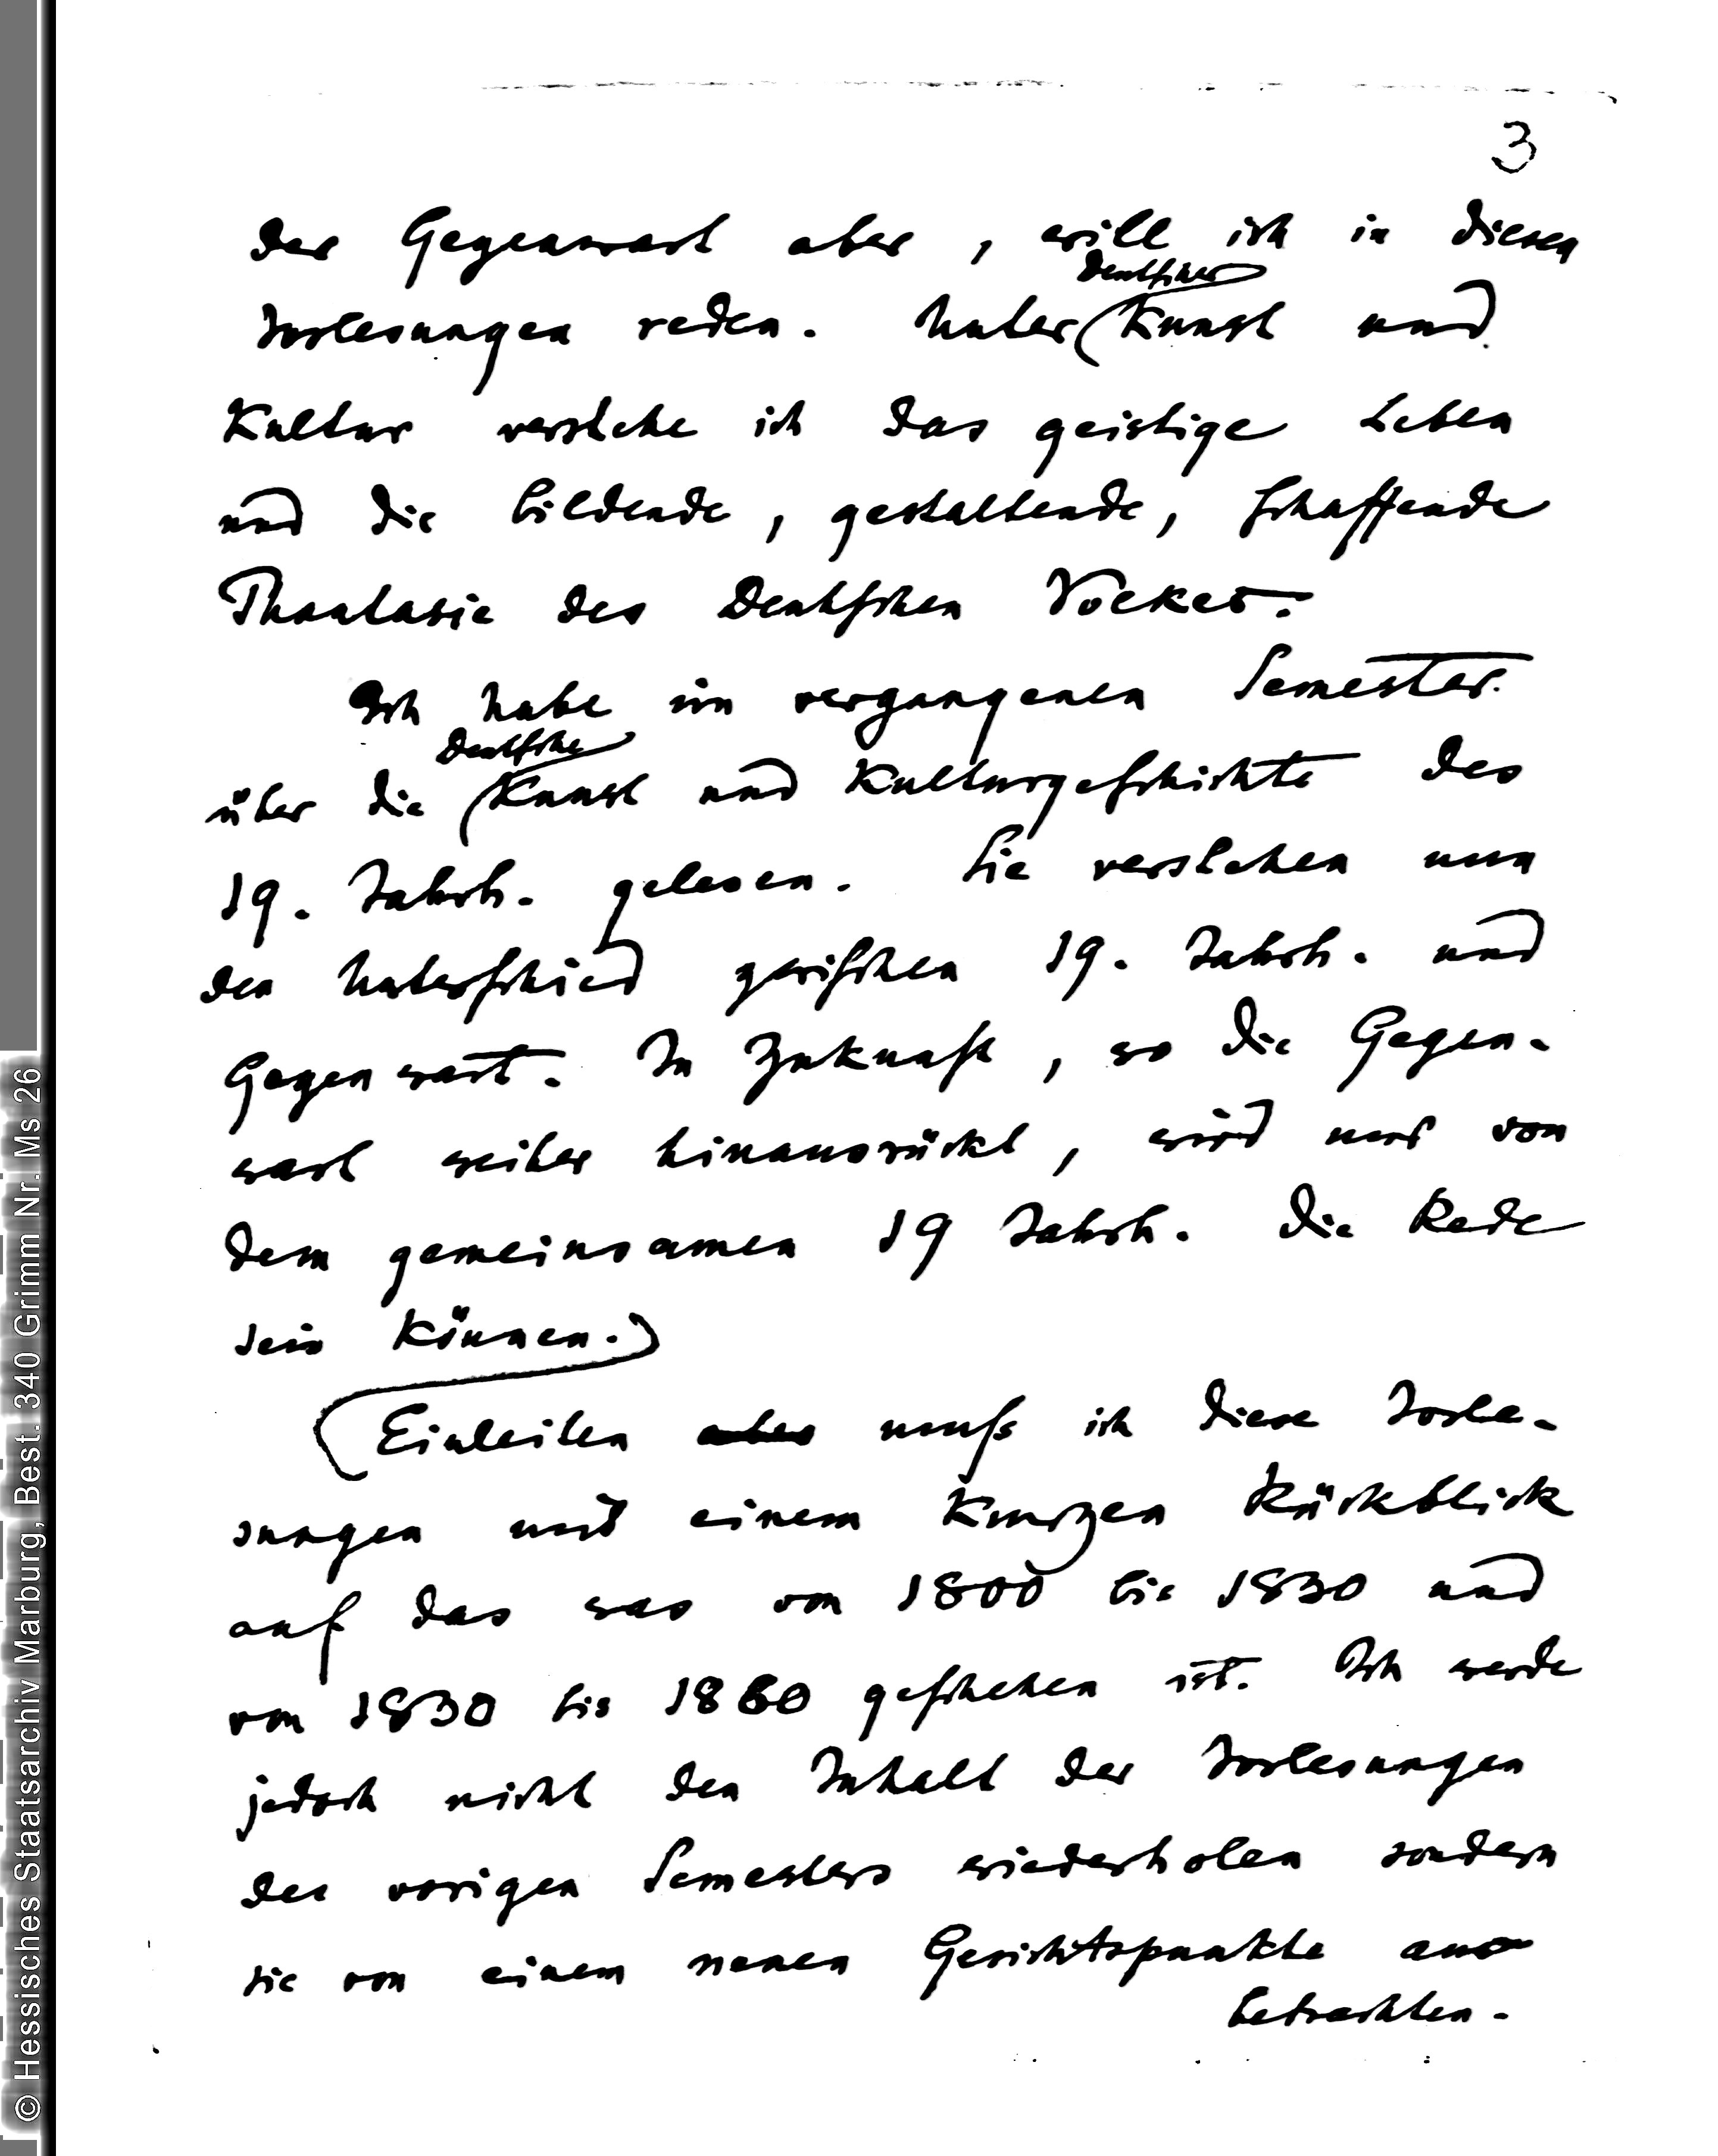 3
der Gegenwart aber, will ich in diesen
deutscher
Vorlesungen reden. Unter (Kunst und
Kultur verstehe ich das geistige Leben
und die bildende, gestaltende, schaffende
Phantasie des deutschen Volkes.
Ich habe im vergangenen Semester
deutsche
über die (Kunst und Kulturgeschichte des
19. Jahrh. gelesen. Sie verstehen nun
den Unterschied zwischen 19. Jahrh. und
Gegenwart. In Zukunft, wo die Gegen-
wart weiter hinausrückt, wird nur von
dem gemeinsamen 19 Jahrh. die Rede
sein können.)
(Einleiten aber muß ich diese Vorle-
sungen mit einem kurzen Rückblick
auf das was von 1800 bis 1830 und
von 1830 bis 1860 geschehen ist. Ich werde
jedoch nicht den Inhalt der Vorlesungen
des vorigen Semesters wiederholen sondern
sie von einem neuen Gesichtspunkte aus
betrachten.
© Hessisches Staatsarchiv Marburg, Best. 340 Grimm Nr. Ms 26